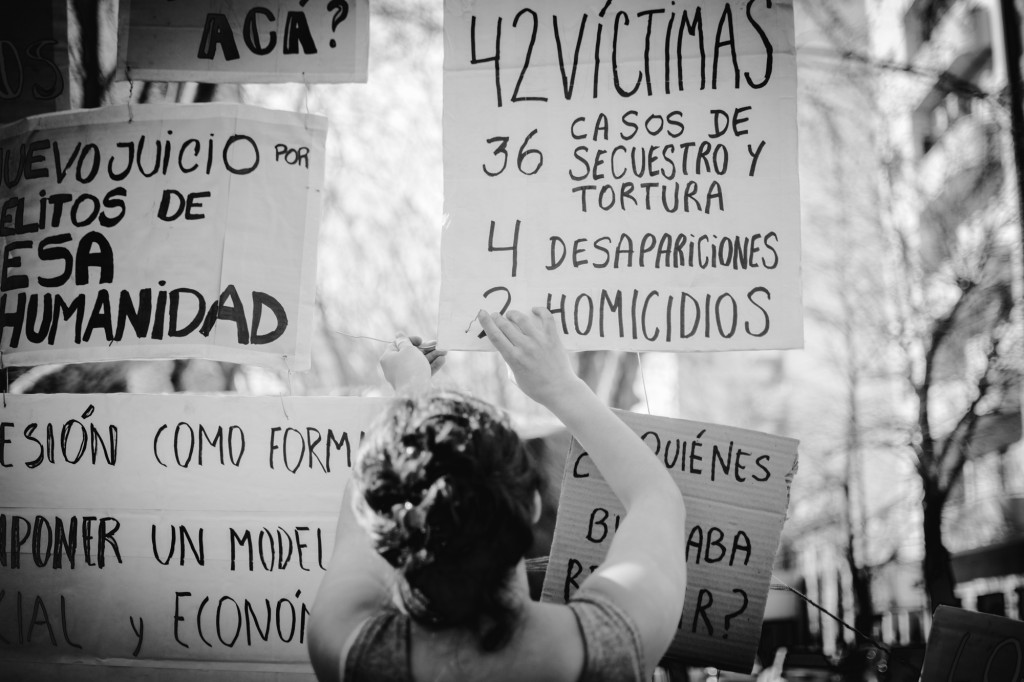 ACÁ?
NUEVO JUICIO POR
DELITOS DE
LESA
HUMANIDAD
42 VÍCTIMAS
36 CASOS DE
SECUESTRO Y
TORTURA
4 DESAPARICIONES
2 HOMICIDIOS
ESIÓN COMO FORM
MPONER UN MODEL
CIAL y ECONÓM
QUIÉNES
B ABA
R R?